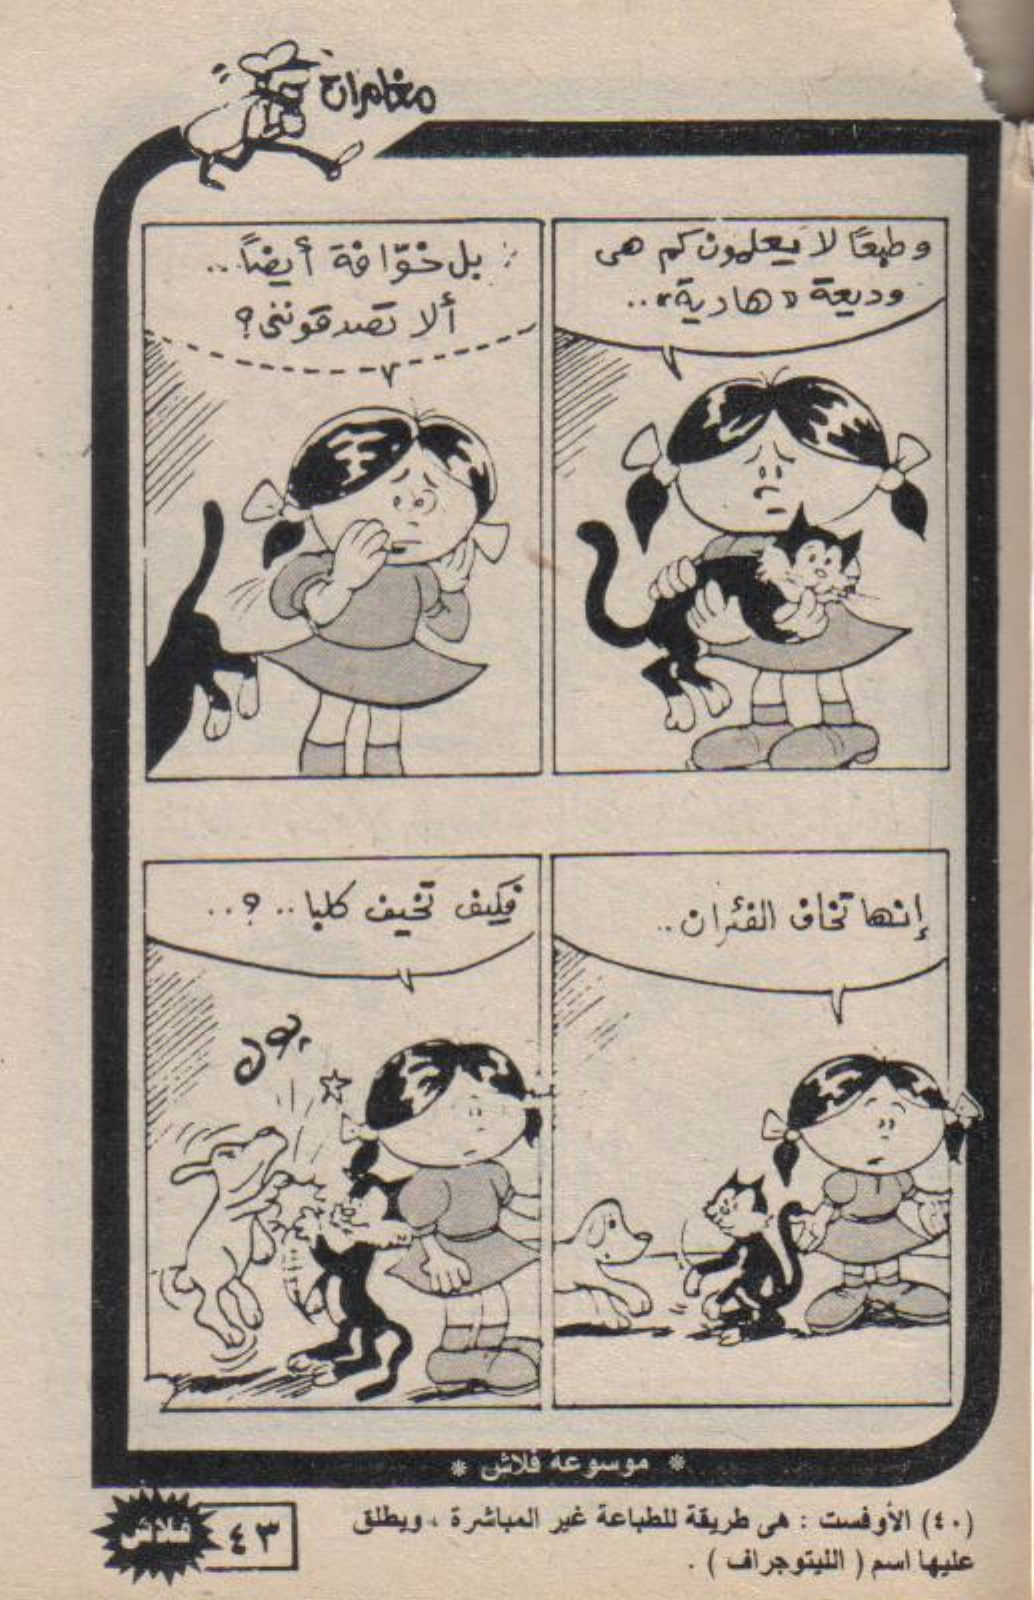 مغامرات
وطبعًا لا يعلمون كم هى
وديعة «هادية»..
بل خوّافة أيضاً...
ألا تصدقوننى؟
إنها تخاف الفئران..
فكيف تخيف كلبا..؟..
* موسوعة فلاش *
(٤٠) الأوفست : هى طريقة للطباعة غير المباشرة ، ويطلق
عليها اسم ( الليتوجراف ) .
٤٣
فلاش